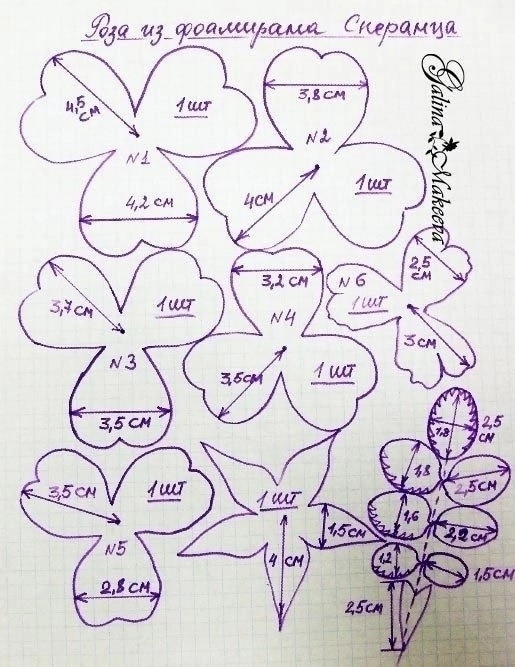 Роза из фоамирана Сперанца
Galina
Makeeva
4,5 см
1 шт
N1
4,2 см
3,8 см
N2
4 см
1 шт
3,7 см
1 шт
N3
3,5 см
3,2 см
N4
3,5 см
1 шт
N6
1 шт
2,5 см
3 см
3,5 см
1 шт
N5
2,8 см
1 шт
4 см
1,5 см
2,5 см
1,8
1,8
2,5 см
1,6
2,2 см
1,2
1,5 см
2,5 см